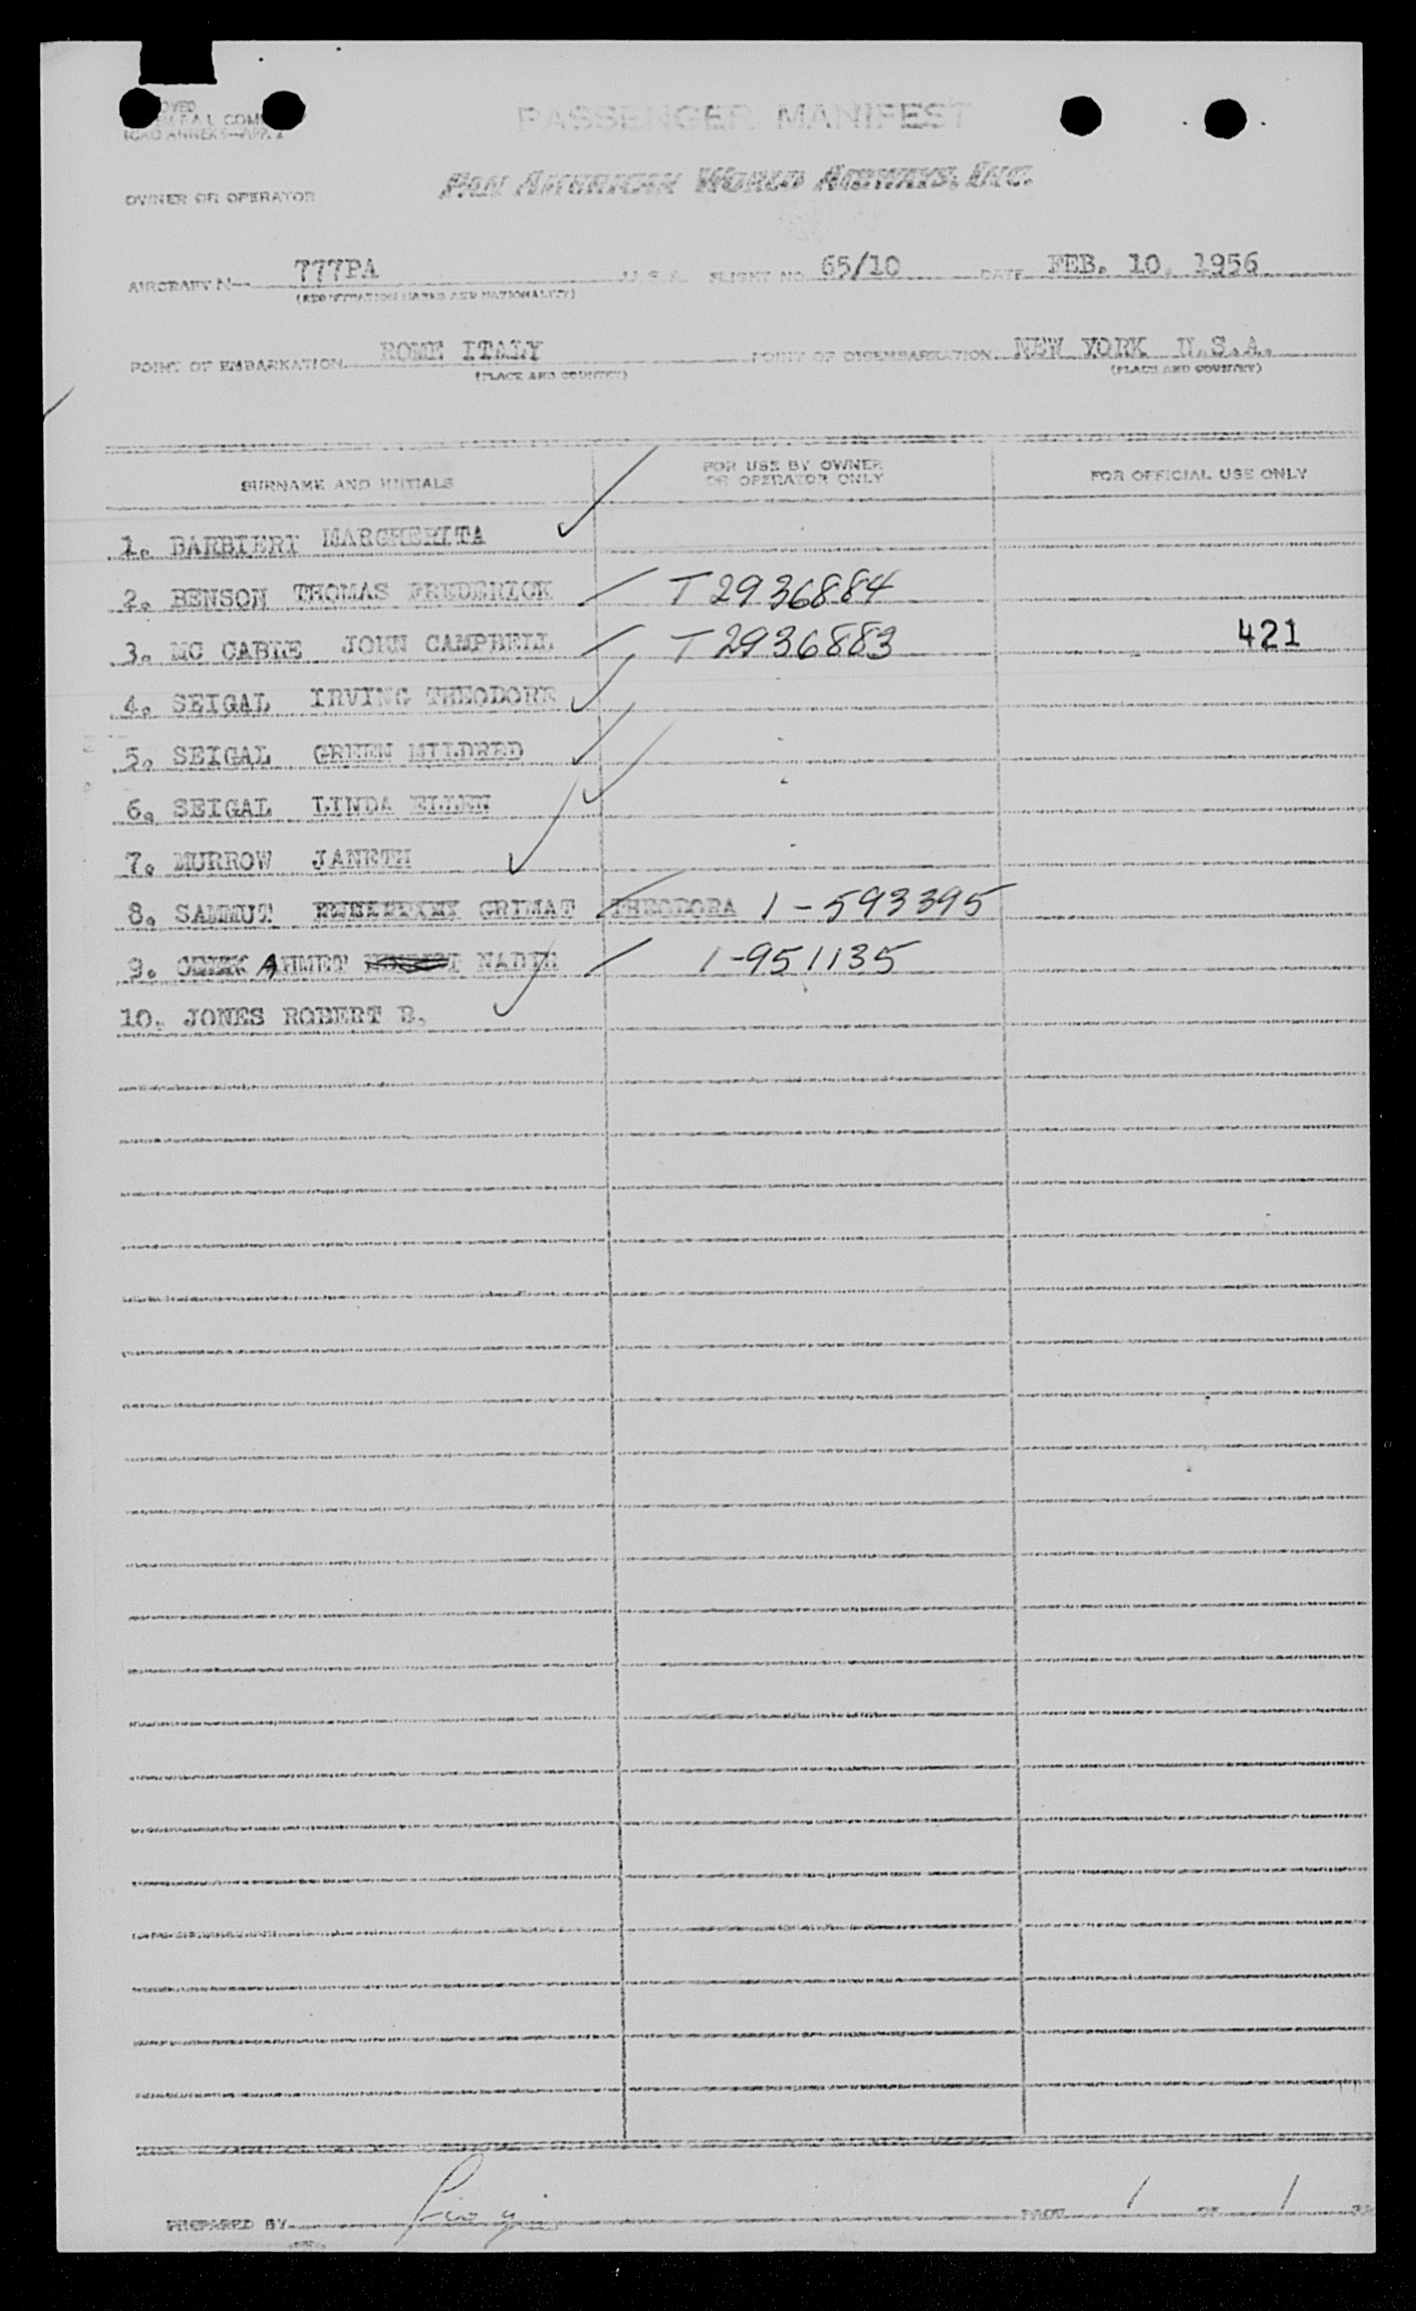 PASSENGER MANIFEST
ICAO ANNEX
OWNER OR OPERATOR PAN AMERICAN WORLD AIRWAYS, INC.
AIRCRAFT N— 777PA U.S.A. FLIGHT NO. 65/10 DATE FEB. 10, 1956
(REGISTRATION MARKS AND NATIONALITY)
POINT OF EMBARKATION ROME ITALY POINT OF DISEMBARKATION NEW YORK U.S.A.
(PLACE AND COUNTRY) (PLACE AND COUNTRY)
SURNAME AND INITIALS FOR USE BY OWNER OR OPERATOR ONLY FOR OFFICIAL USE ONLY
1. BARBIERI MARGHERITA
2. BENSON THOMAS FREDERICK T 2936884
3. MC CABLE JOHN CAMPBELL T 2936883 421
4. SEIGAL IRVING THEODORE
5. SEIGAL GREEN MILDRED
6. SEIGAL LINDA ELLEN
7. MURROW JANETH
8. SAMMUT GRIMAT THEODORA 1-593395
9. AHMET NADIR 1-951135
10. JONES ROBERT B.
PREPARED BY PAGE 1 OF 1